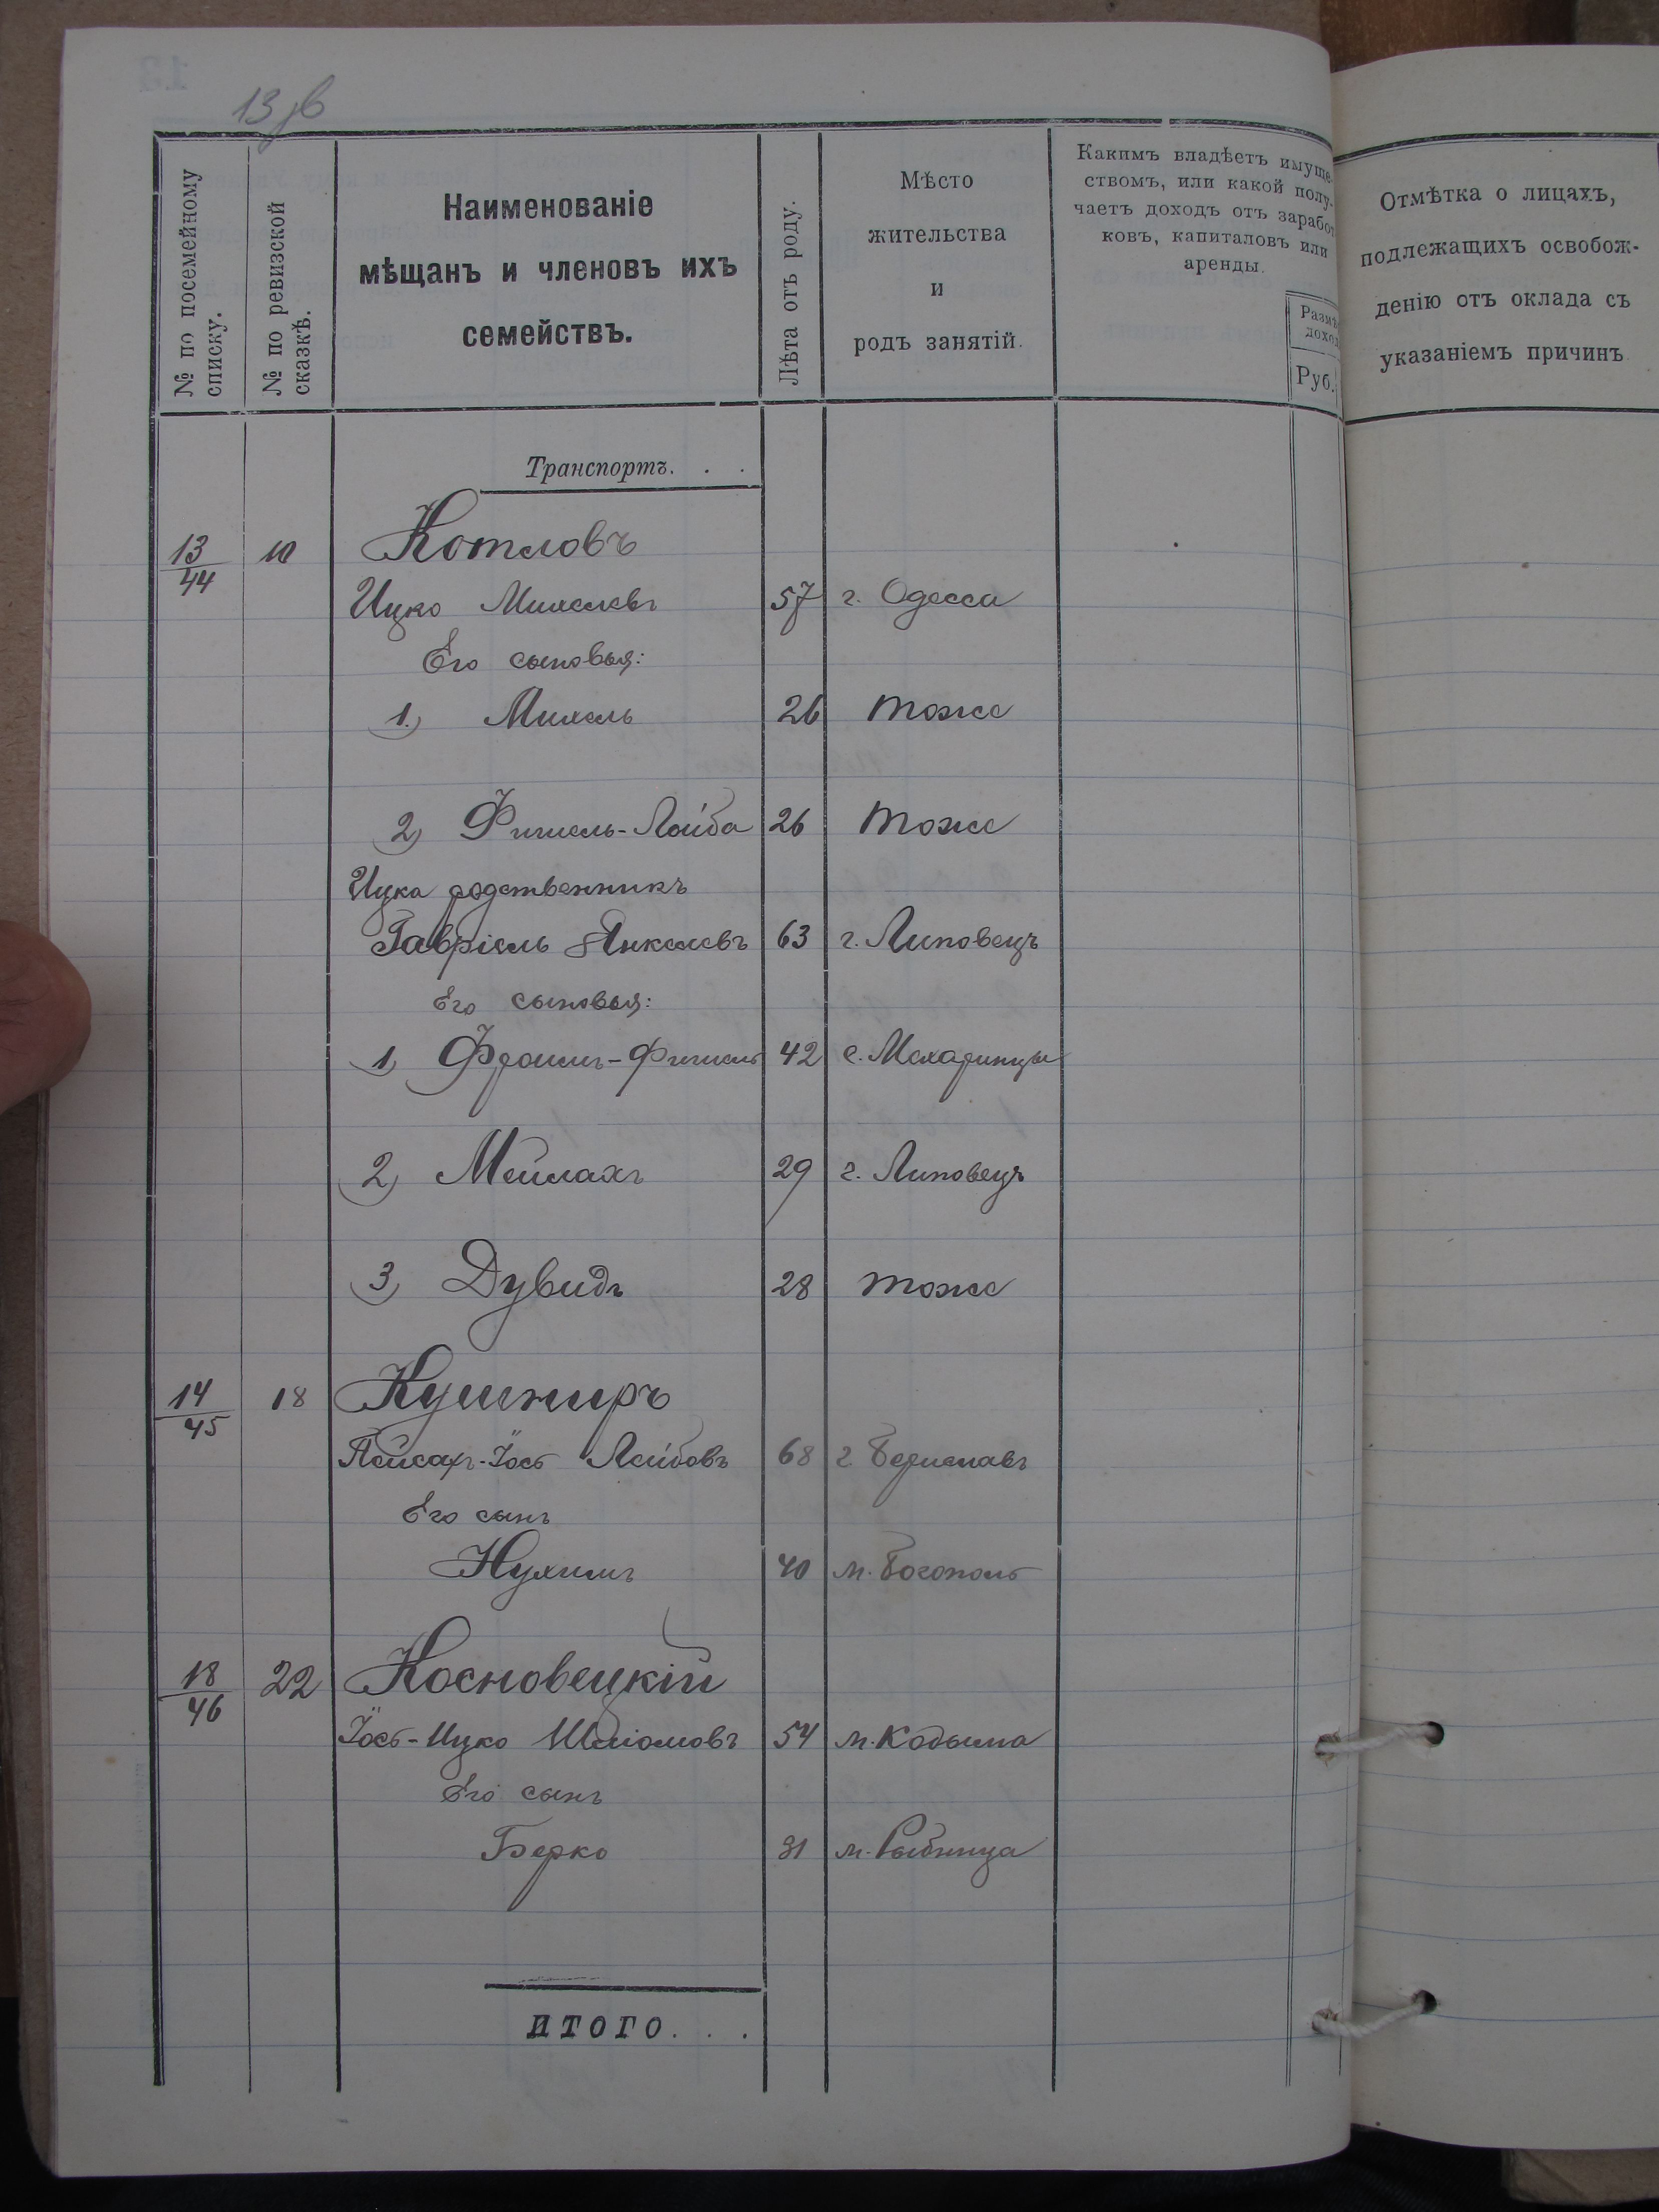 13 зв
№ по посемейному
списку.
№ по ревизской
сказкѣ.
Наименованіе
мѣщанъ и членовъ ихъ
семействъ.
Лѣта отъ роду.
Мѣсто
жительства
и
родъ занятій.
Какимъ владѣетъ имуще-
ствомъ, или какой полу-
чаетъ доходъ отъ заработ
ковъ, капиталовъ или
аренды.
Размѣ
доход
Руб.
Отмѣтка о лицахъ,
подлежащихъ освобож-
денію отъ оклада съ
указаніемъ причинъ
Транспортъ. . .
13/44 10 Котловъ
Ицко Михелевъ 57 г. Одесса
Его сыновья:
1) Михель 26 тоже
2) Фишель-Лейба 26 тоже
Ицка родственникъ
Гавріель Янкелевъ 63 г. Липовецъ
Его сыновья:
1) Фроимъ-Фишель 42 с. Мехаринцы
2) Мейлахъ 29 г. Липовецъ
3) Дувидъ 28 тоже
14/45 18 Кушниръ
Пейсахъ-Іось Лейбовъ 68 г. Бериславъ
Его сынъ
Нухимъ 40 м. Богополь
18/46 22 Косновецкій
Іось-Ицко Шліомовъ 54 м. Кодыма
Его сынъ
Берко 31 м. Рыбница
ИТОГО. . .